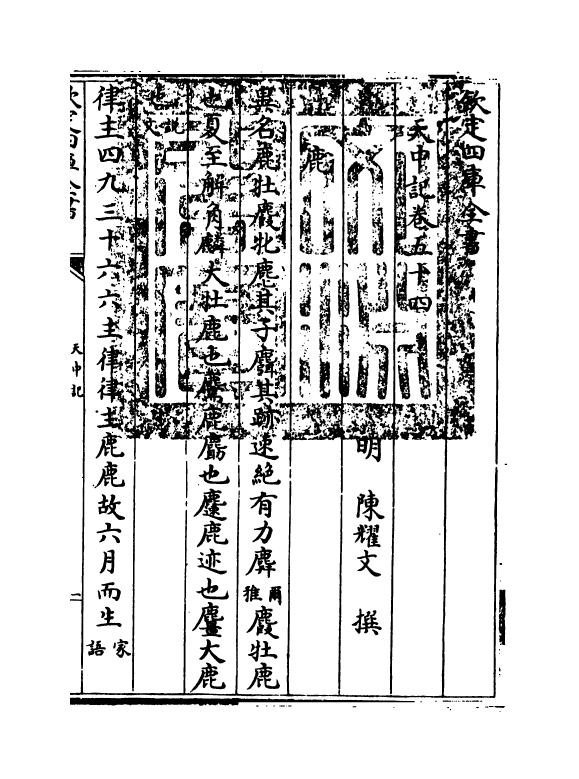 欽定四庫全書
天中記卷五十四
明 陳耀文 撰
鹿
異名鹿牡麚牝麀其子麛其跡速絶有力麉爾雅麚牡鹿
也夏至解角麟大牡鹿也麢鹿麛也麈鹿迹也麠大鹿
也說文
律主四九三十六六主律律主鹿鹿故六月而生家語
天中記
二